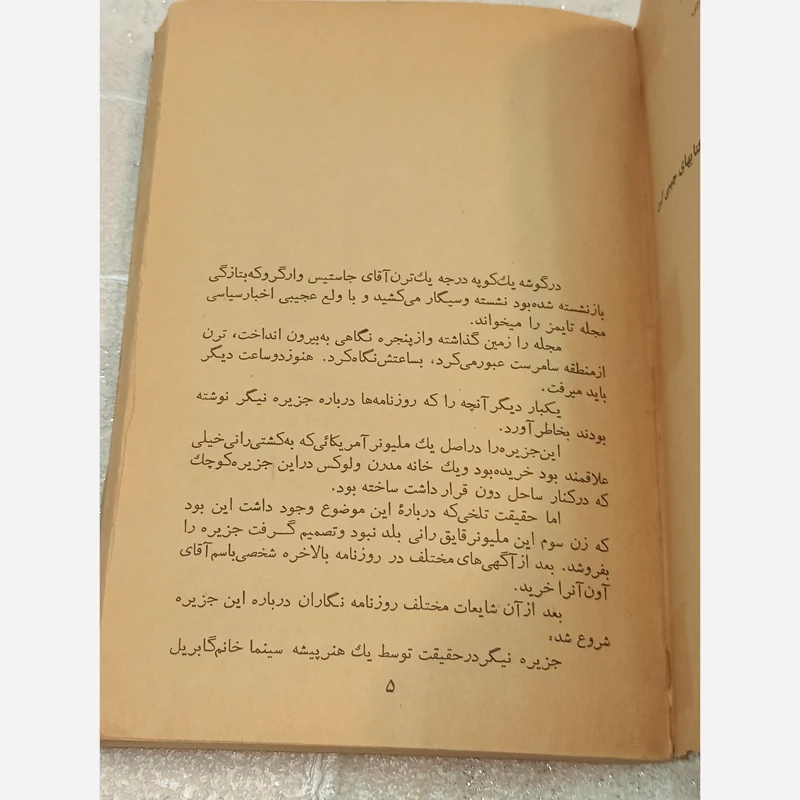 درگوشه یك کوپه درجه یك ترن آقای جاستیس وارگروکه بتازگی
بازنشسته شده بود نشسته وسیگار می‌کشید و با ولع عجیبی اخبار سیاسی
مجله تایمز را میخواند.
مجله را زمین گذاشته وازپنجره نگاهی به‌بیرون انداخت، ترن
ازمنطقه سامرست عبورمی‌کرد، بساعتش نگاه‌کرد. هنوزدوساعت دیگر
باید میرفت.
یکبار دیگر آنچه را که روزنامه‌ها درباره جزیره نیگر نوشته
بودند بخاطر آورد.
این‌جزیره‌را دراصل یك ملیونر آمریکائی‌که به‌کشتی‌رانی‌خیلی
علاقمند بود خریده‌بود ویك خانه مدرن ولوکس دراین جزیره‌کوچك
که درکنار ساحل دون قرار داشت ساخته بود.
اما حقیقت تلخی‌که دربارهٔ این موضوع وجود داشت این بود
که زن سوم این ملیونرقایق رانی بلد نبود وتصمیم گرفت جزیره را
بفروشد. بعد ازآگهی‌های مختلف در روزنامه بالاخره شخصی‌باسم‌آقای
آون‌آنرا خرید.
بعد ازآن شایعات مختلف روزنامه نگاران درباره این جزیره
شروع شد:
جزیره نیگردرحقیقت توسط یك هنرپیشه سینما خانم‌گابریل
۵